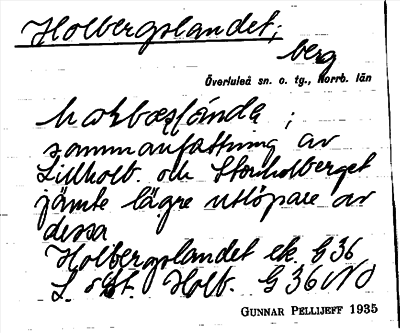 Holbergslandet;
berg
Överluleå sn. o. tg., Norrb. län
sammanfattning av
Lillholb. och Storholberget
jämte lägre utlöpare av
dessa
Holbergslandet ek. G 36
L. o St. Holb. G 36 NO
GUNNAR PELLIJEFF 1935